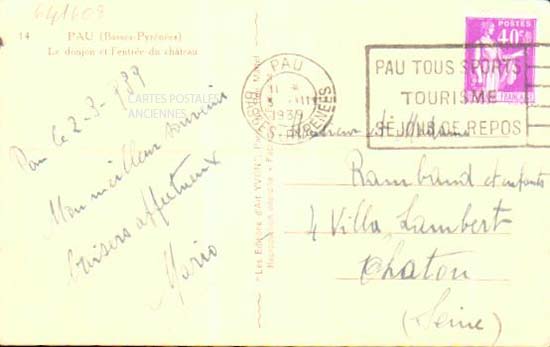 641609
14 PAU (Basses-Pyrénées)
Le donjon et l'entrée du château
CARTES POSTALES
ANCIENNES
Pau le 2-3-939
Mon meilleur souvenir
baisers affectueux
Mario
"Les Editions d'Art YVON"
PAU
1939
BASSES PYRENEES
POSTES
40c
PAU TOUS SPORTS
TOURISME
SÉJOUR DE REPOS
Monsieur et Madame
Rambaud et enfants
4 Villa Lambert
Chatou
(Seine)